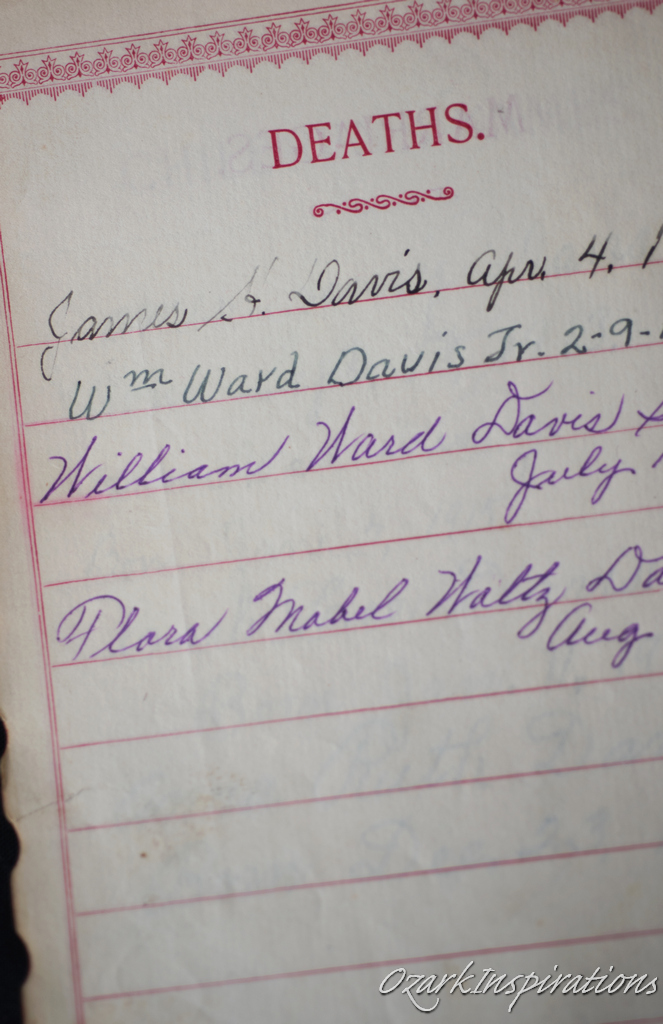 DEATHS.
James H. Davis, Apr. 4, 1
Wm Ward Davis Jr. 2-9-
William Ward Davis
July
Flora Mabel Waltz Da
Aug
OzarkInspirations